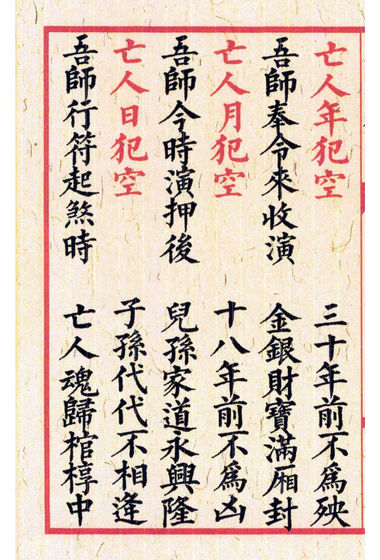 亡人年犯空　三十年前不爲殃
吾師奉令來收演　金銀財寶滿廂封
亡人月犯空　十八年前不爲凶
吾師今時演押後　兒孫家道永興隆
亡人日犯空　子孫代代不相逢
吾師行符起煞時　亡人魂歸棺椁中